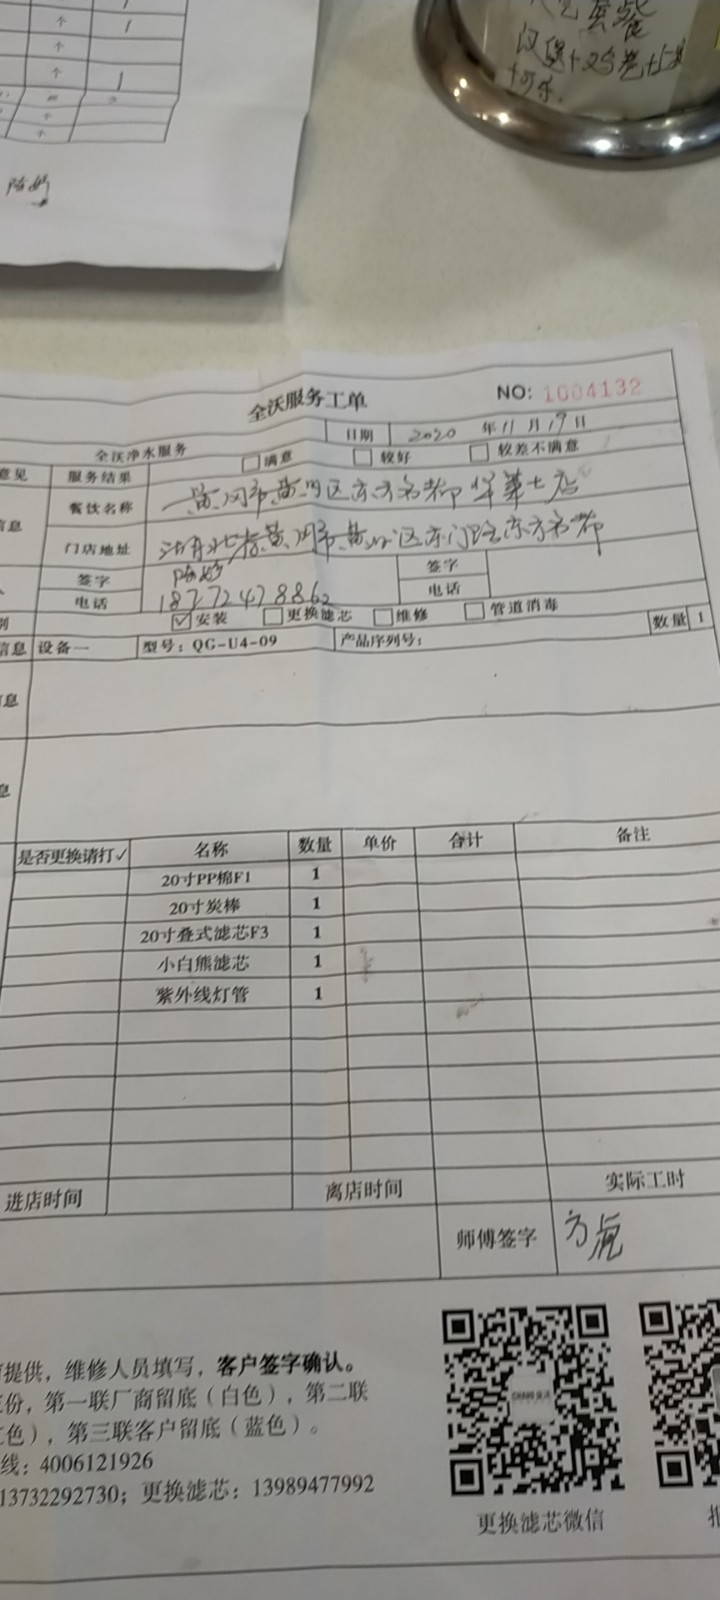 个 1
个
个 1
个
个
汉堡+鸡卷+
+可乐.
全沃服务工单
NO: 1004132
全沃净水服务 日期 2020 年 11 月 19 日
意见 服务结果 满意 较好 较差不满意
餐饮名称 黄冈市黄州区东方名都华莱士店
信息 门店地址 湖北省黄冈市黄州区东门路东方名都
签字 陈 签字
电话 18772478862 电话
别 ✓安装 更换滤芯 维修 管道消毒
信息 设备一 型号：QG-U4-09 产品序列号： 数量 1
信息
息
是否更换请打✓ 名称 数量 单价 合计 备注
20寸PP棉F1 1
20寸炭棒 1
20寸叠式滤芯F3 1
小白熊滤芯 1
紫外线灯管 1
进店时间 离店时间 实际工时
师傅签字 方
提供，维修人员填写，客户签字确认。
份，第一联厂商留底（白色），第二联
色），第三联客户留底（蓝色）。
线：4006121926
13732292730；更换滤芯：13989477992
更换滤芯微信